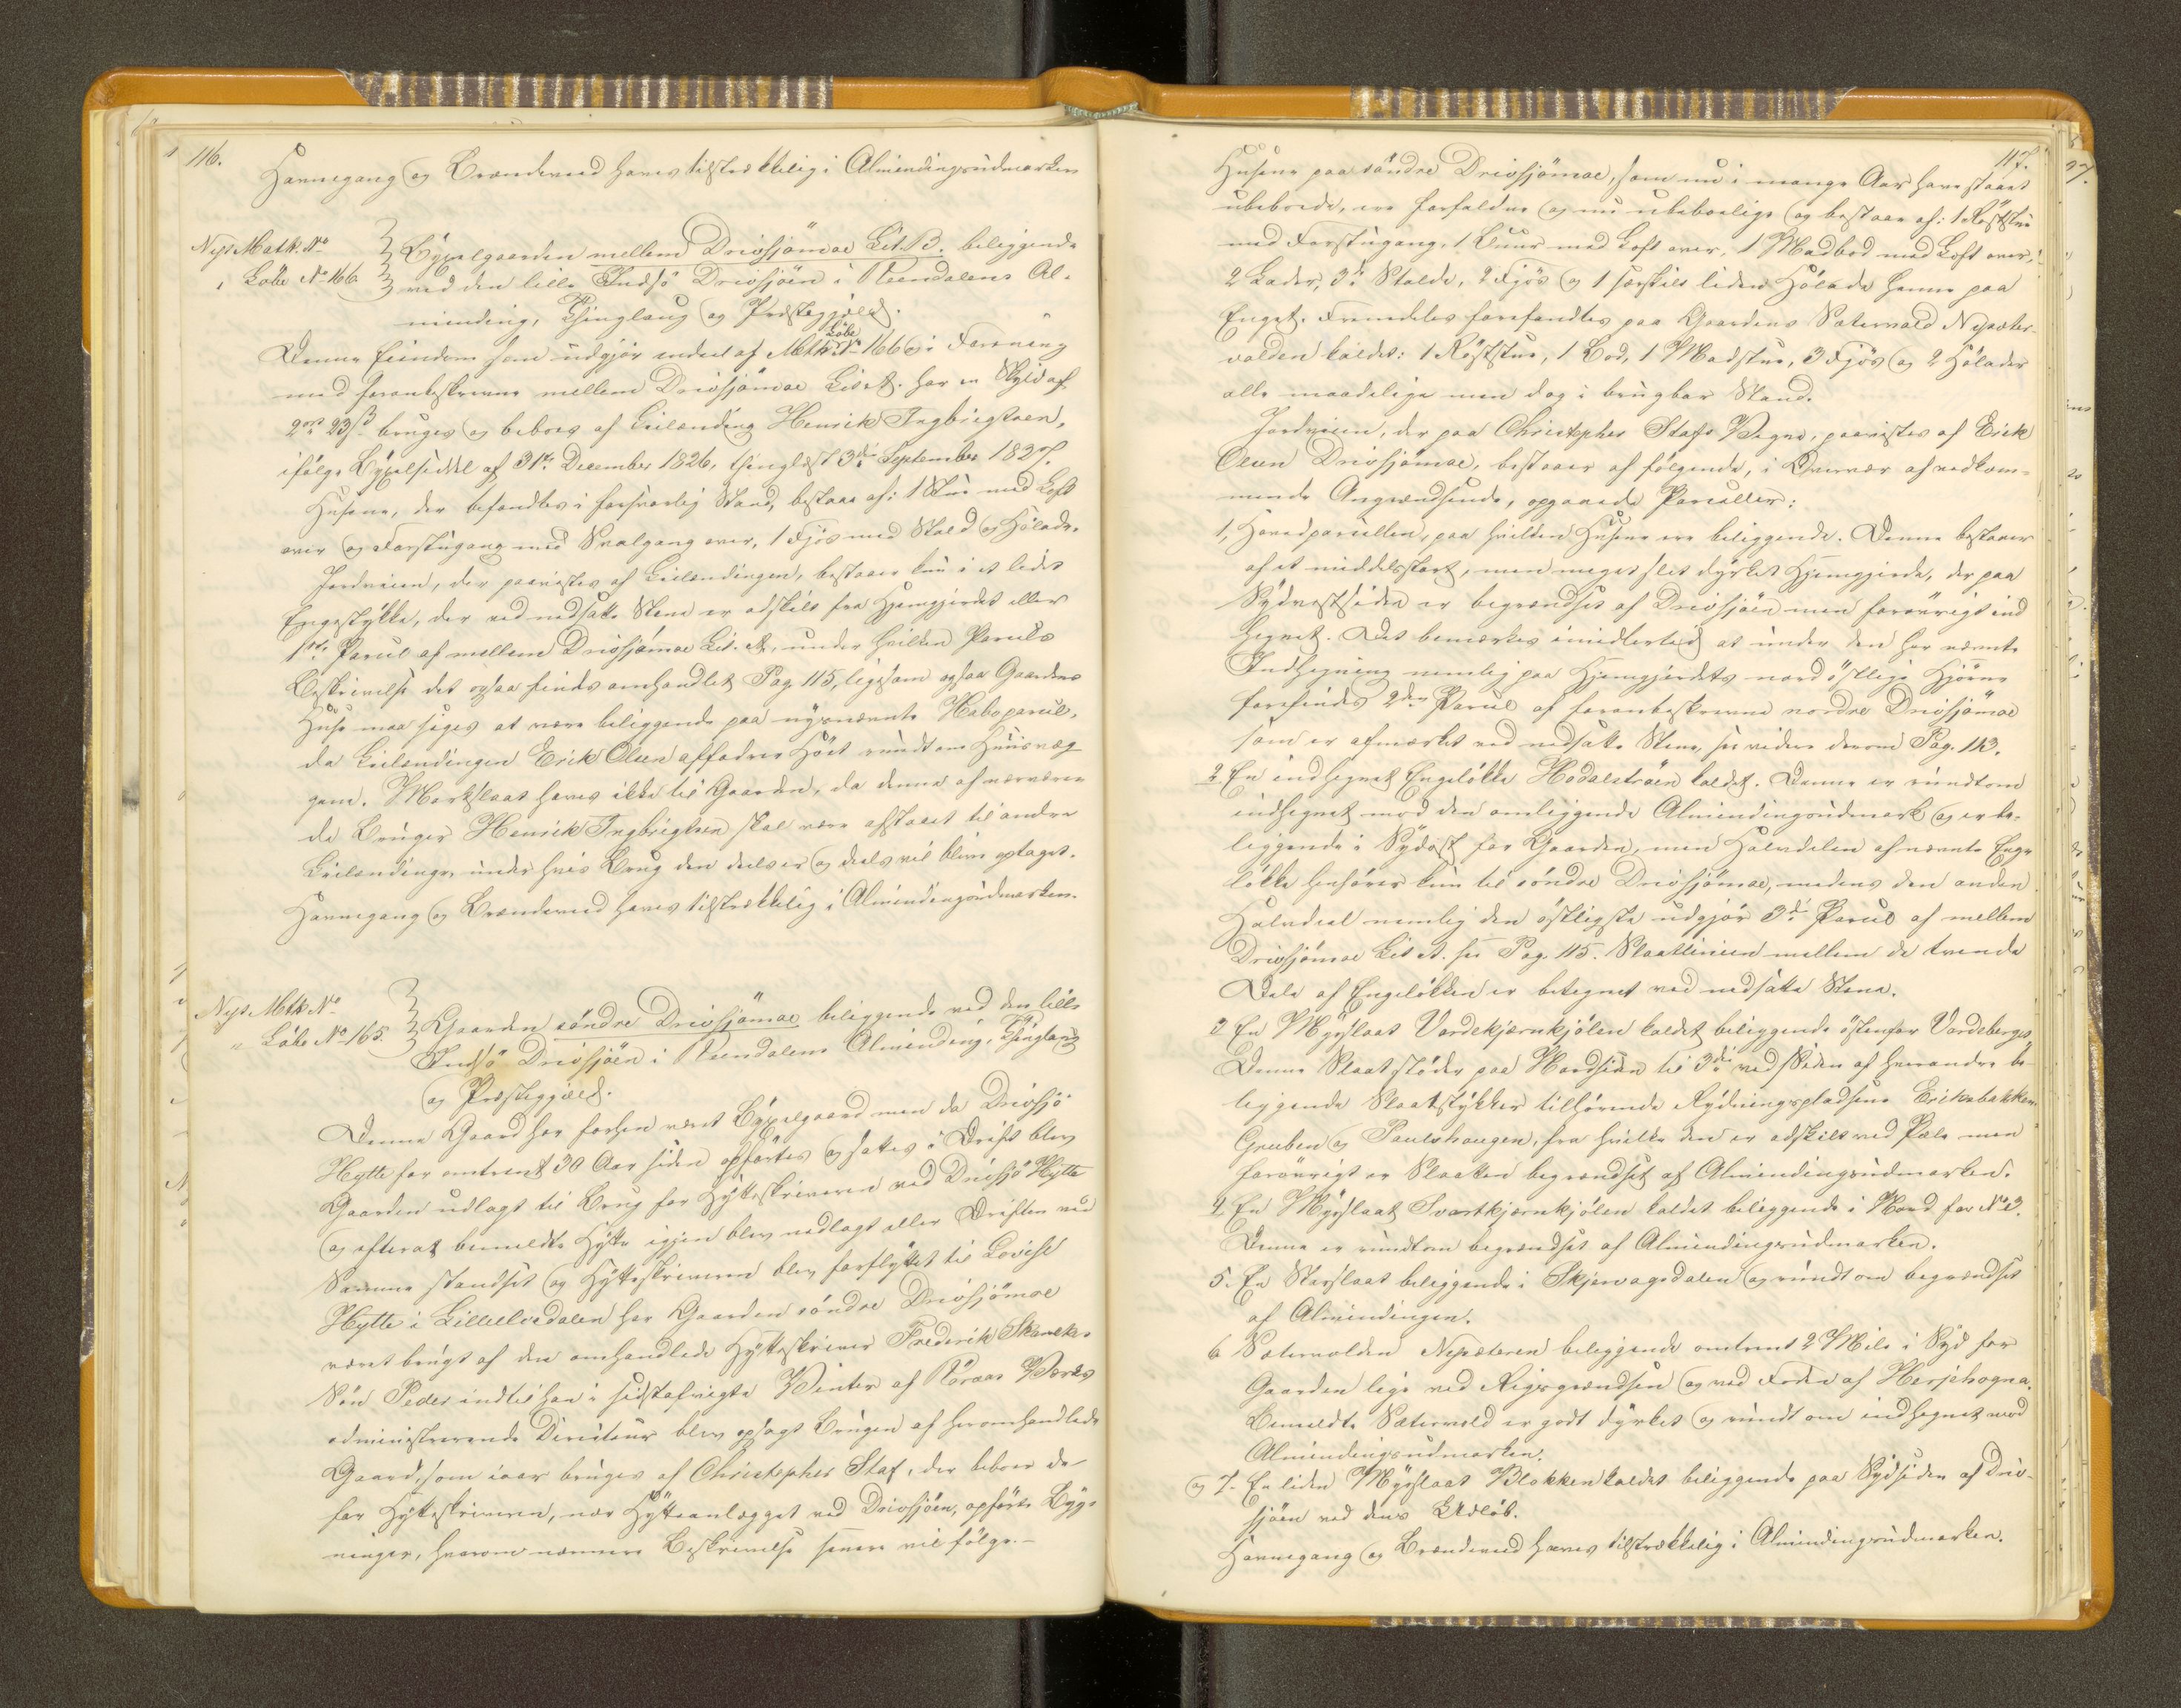 116.
Havnegang og Brændeved haves tilstrækkelig i Almindingsudmarken
Nye Matk. No
" Løbe No 166.
Bygselgaarden mellem Drivsjömoe Lit. B. beliggende
ved den lille Indsö Drivsjöen i Reendalens Al-
minding, Thinglaug og Præstegjæld.
Denne Eiendom som udgjør endeel af Matk. Løbe No 166 i Forening
med foranbeskrevne mellem Drivsjömoe Lit A. har en Skyld af
2 ort 23 ß bruges og beboes af Leilænding Henrik Ingbrigtsen,
ifølge Bygselseddel af 31te December 1826, thinglæst 3die September 1827.
Husene, der befandtes i forsvarlig Stand, bestaar af: 1 Stue med Loft
over og Forstugang med Svalgang over, 1 Fjøs med Stald og Hølade.
Jordveien, der paavistes af Leilændingen, bestaaer kun i et lidet
Engestykke, der ved nedsatte Stene er adskilt fra Hjemgjerdet eller
1ste Parcel af mellem Drivsjömoe Lit. A, under hvilken Parcels
Beskrivelse det ogsaa findes omhandlet Pag. 115, ligesom ogsaa Gaardens
Huse maa siges at være beliggende paa nysnævnte Naboparcel,
da Leilændingen Erik Olsen affodrer Höet rundt om Huusvæg
gene. Markslaat haves ikke til Gaarden, da denne af nærværen
de Bruger Henrik Ingbrigtsen skal være afstaaet til andre
Leilændinge, under hvis Brug den deels er og deels vil blive optaget.
Havnegang og Brændeved haves tilstrækkelig i Almindingsudmarken.
Nye Mtk. No
" Løbe No 165.
Gaarden söndre Drivsjömoe beliggende ved den lille
Indsö Drivsjöen i Reendalens Alminding, Thinglaug
og Præstegjæld.
Denne Gaard har forhen været Bygselgaard men da Drivsjö
Hytte for omtrent 30 Aar siden opførtes og sattes i Drift blev
Gaarden udlagt til Brug for Hytteskriveren ved Drivsjö Hytte
og efterat bemeldte Hytte igjen blev nedlagt eller Driften ved
Samme standset og Hytteskriveren blev forflyttet til Lovise
Hytte i Lilleelvedalen har Gaarden söndre Drivsjömoe
været brugt af den omhandlede Hytteskriver Frederik Skanckes
Søn Peder indtil han i sidstafvigte Vinter af Röraas Værks
administrerende Directeur blev opsagt Brugen af heromhandlede
Gaard, som iaar bruges af Christopher Staf, der beboer de
for Hytteskriveren, nær Hytteanlægget ved Drivsjöen, opførte Byg-
ninger, hvorom nærmere Beskrivelse senere vil følge.-
117.
Husene paa söndre Drivsjömoe, som nu i mange Aar have staaet
ubeboede, ere forfaldne og nu ubeboelige og bestaar af: 1 Røststue
med Forstugang, 1 Buur med Loft over, 1 Madbod med Loft over,
2 Lader, 3de Stalde, 2 Fjös og 1 særskilt liden Hölade henne paa
Enget. Fremdeles forefandtes paa Gaardens Sætervold Nysæter-
volden kaldet: 1 Røststue, 1 Bod, 1 Madstue, 3 Fjös og 2 Hölader
alle maadelige men dog i brugbar Stand.
Jordveien, der paa Christopher Stafs Vegne, paavistes af Erik
Olsen Drivsjömoe, bestaaer af følgende, i Overvær af vedkom-
mende Angrændsende, opgaaede Parceller:
1, Hovedparcellen, paa hvilken Husene ere beliggende. Denne bestaaer
af et middelstort, men meget slet dyrket Hjemgjerde, der paa
Sydvestsiden er begrændset af Drivsjöen men forøvrigt ind
hegnet. Det bemærkes imidlertid at under den her nævnte
Indhegning nemlig paa Hjemgjerdets nordöstlige Hjørne
forefindes 2den Parcel af foranbeskrevne nordre Drivsjömoe
som er afmærket ved nedsatte Stene, see videre derom Pag. 113.
2 En indhegnet Engeløkke Hodalströen kaldet. Denne er rundtom
indhegnet mod den omliggende Almindingsudmark og er be-
liggende i Sydost for Gaarden, men Halvdelen af nævnte Enge
løkke henføres kun til söndre Drivsjömoe, medens den anden
Halvdeel nemlig den østligste udgjør 3die Parcel af mellem
Drivsjömoe Lit A. see Pag. 115. Slaatlinien mellem de tvende
Dele af Engeløkken er betegnet ved nedsatte Stene.
3 En Myrslaat Vardekjærnkjölen kaldet beliggende østenfor Vardeberget
Denne Slaat støder paa Nordsiden til 3de ved Siden af hverandre be-
liggende Slaatstykker tilhørende Rydningspladsene Eriksbakken
Gruben og Paulshaugen, fra hvilke den er adskilt ved Pæle men
forøvrigt er Slaatten begrændset af Almindingsudmarken.
4 En Myrslaat Svartkjærnkjölen kaldet beliggende i Nord for No 3.
Denne er rundtom begrændset af Almindingsudmarken.
5. En Starslaat beliggende i Skjervagsdalen og rundt om begrændset
af Almindingen.
6 Sætervolden Nysæteren beliggende omtrent 2 Mile i Syd for
Gaarden lige ved Rigsgrændsen og ved Foden af Herjehogna.
Bemeldte Sætervold er godt dyrket og rundt om indhegnet mod
Almindingsudmarken.
og 7. En liden Myrslaat Blokken kaldet beliggende paa Sydsiden af Driv-
sjöen ved dens Udløb.
Havnegang og Brændeved haves tilstrækkelig i Almindingsudmarken.